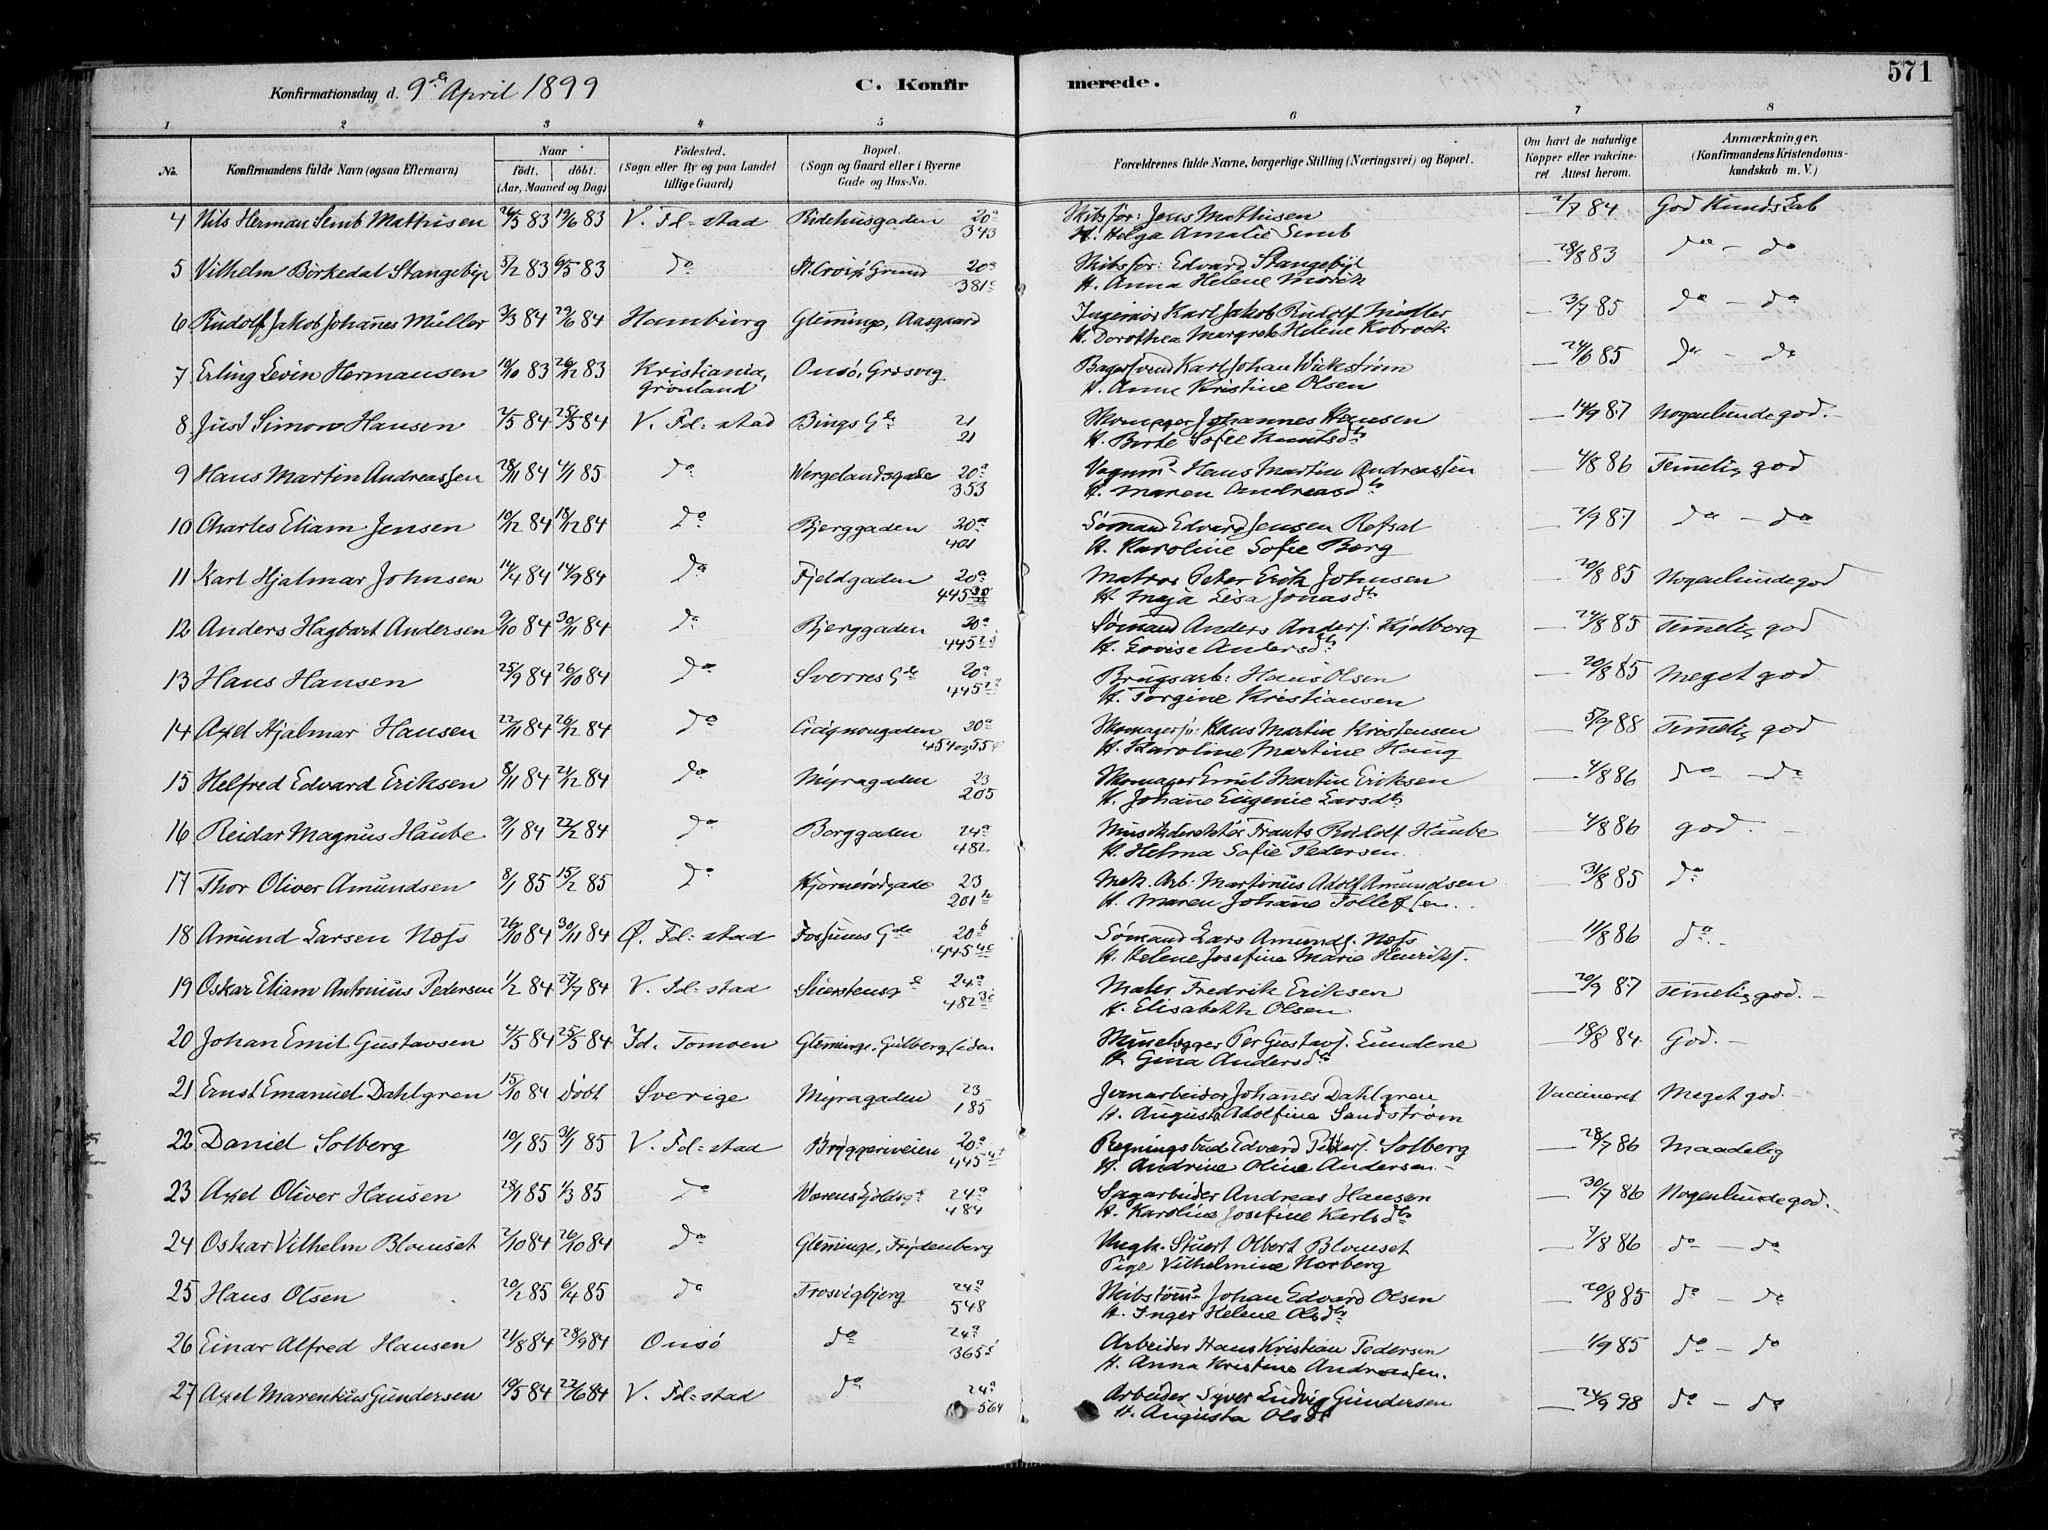 571
Konfirmationsdag d. 9de April 1899 C. Konfirmerede.
1 2 3 4 5 6 7 8
No. Konfirmandens fulde Navn (ogsaa Efternavn) Naar Födt. döbt. (Aar, Maaned og Dag) Födested. (Sogn eller By og paa Landet tillige Gaard) Bopæl. (Sogn og Gaard eller i Byerne Gade og Hus-No. Forældrenes fulde Navne, borgerlige Stilling (Næringsvei) og Bopæl. Om havt de naturlige Kopper eller vakcineret. Attest herom. Anmærkninger. (Konfirmandens Kristendomskundskab m. V.)
4 Nils Herman Semb Mathisen 24/5 83 19/6 83 V. Fd=stad Ridehusgaden 20a 343 Skibsfør: Jens Mathisen 2/7 84 God Kundskab
H. Helga Amalie Semb
5 Vilhelm Börkedal Stangebye 3/2 83 6/5 83 do St. Croix Grund 20a 381c Skibsfør: Edvard Stangebye — 28/8 83 do — do
H. Anna Helene
6 Rudolf Jakob Johannes Müller 3/3 84 29/6 84 Hamburg Glemminge, Aasgaard Ingeniör Karl Jakob Rudolf Müller — 3/7 85 do — do
H. Dorothea Margrete Helene Kobrock
7 Erling Levin Hermansen 10/10 83 26/12 83 Kristiania, Grönland Onsö, Gresvig Bagersvend Karl Johan Wickstrøm — 24/6 85 do — do
H. Anne Kristine Olsen
8 Just Simon Hansen 2/5 84 25/5 84 V. Fd=stad Bings Gde 21 21 Skomager Johannes Hansen — 14/9 87 Nogenlunde god.
H. Berte Sofie Knutsdtr
9 Hans Martin Andreassen 28/11 84 4/1 85 do Wergelandsgade 20a 353 Vognmd Hans Martin Andreassen — 4/8 86 Temmelig god
H. Maren Andreasdtr
10 Charles Eliam Jensen 10/12 84 18/12 84 do Bjerggaden 20a 401 Sømand Edvard Jensen Refsal — 2/9 87 do — do
H. Karoline Sofie Berg
11 Karl Hjalmar Johnsen 14/4 84 14/9 84 do Fjeldgaden 20a 445 Matros Peter Erik Johnsen — 20/8 85 Nogenlunde god
H. Maja Lisa Jonasdtr
12 Anders Hagbart Andersen 9/10 84 30/11 84 do Bjerggaden 20a 445 Sømand Anders Anders. Kjelberg — 24/8 85 Temmelig god
H. Lovise Andersdtr
13 Hans Hansen 25/9 84 26/10 84 do Sverres Gde 20a 445 Brugsarb: Hans Olsen — 20/8 85 Meget god
H. Torgine Kristiansen
14 Axel Hjalmar Hansen 22/11 84 26/12 84 do Cicignongaden 20a 454 og 55 Skomagersv: Hans Martin Kristensen — 5/9 88 Temmelig god
H. Karoline Martine Haug
15 Helfred Edvard Eriksen 8/11 84 21/12 84 do Myragaden 23 205 Skomager Emil Martin Eriksen — 4/8 86 do — do
H. Johanne Eugenie Larsdtr
16 Reidar Magnus Haube 9/1 84 22/2 84 do Borggaden 24a 482 Musikdirektör Frants Rudolf Haube — 4/8 86 god.
H. Helma Sofie Pedersen
17 Thor Oliver Amundsen 8/1 85 15/2 85 do Hjörnerödgade 23 201b Mek. Arb: Martinus Adolf Amundsen — 31/8 85 do
H. Maren Johanne Tollefsen.
18 Amund Larsen Næss 26/10 84 30/11 84 Ø. Fd=stad Fossums Gde 20b 445 Sømand Lars Amunds. Næss — 11/8 86 do
H. Helene Josefine Marie Henriks.
19 Oskar Eliam Antonius Pedersen 1/2 84 27/7 84 V. Fd=stad 24a 482 Maler Fredrik Eriksen — 20/9 87 Temmelig god.
H. Elisabeth Olsen
20 Johan Emil Gustavsen 4/5 84 25/5 84 Id. Tomoen Glemminge. Gulbergsiden Per Gustavs. Lundene — 18/8 84 God.
H. Gina Andersdtr
21 Ernst Emanuel Dahlgren 15/10 84 Döbt Sverige Myragaden 23 185 Jernarbeider Johannes Dahlgren Vaccineret Meget god.
H. Augusta Adolfine Sandstrøm
22 Daniel Solberg 10/1 85 31/1 85 V. Fd=stad Bryggeriveien 20a 445 Regningsbud Edvard Peters. Solberg — 28/7 86 Maadelig
H. Andrine Oline Andersen
23 Axel Oliver Hansen 28/1 85 1/3 85 do Værenskjoldsgd 24a 484 Sagarbeider Andreas Hansen — 30/7 86 Nogenlunde god.
H. Karoline Josefine Karlsdtr
24 Oskar Vilhelm Blomset 2/10 84 26/10 84 do Glemminge, Frydenberg Ungk. Stuert Olbert Blomset — 7/8 86 do — do
Pige Vilhelmine Norberg
25 Hans Olsen 20/2 85 6/4 85 do Trosvigbjerg 24a 548 Skibstømd. Johan Edvard Olsen — 20/8 85 do — do
H. Inger Helene Olsdtr
26 Einar Alfred Hansen 21/8 84 28/9 84 Onsö do 24a 365 Arbeider Hans Kristian Pedersen — 1/9 85 do — do
H. Anna Kristine Andreassen.
27 Axel Marentius Gundersen 10/5 84 22/6 84 V. Fd=stad do 24a 564 Arbeider Syver Ludvig Gundersen — 24/9 98 do — do
H. Augusta Olsdtr